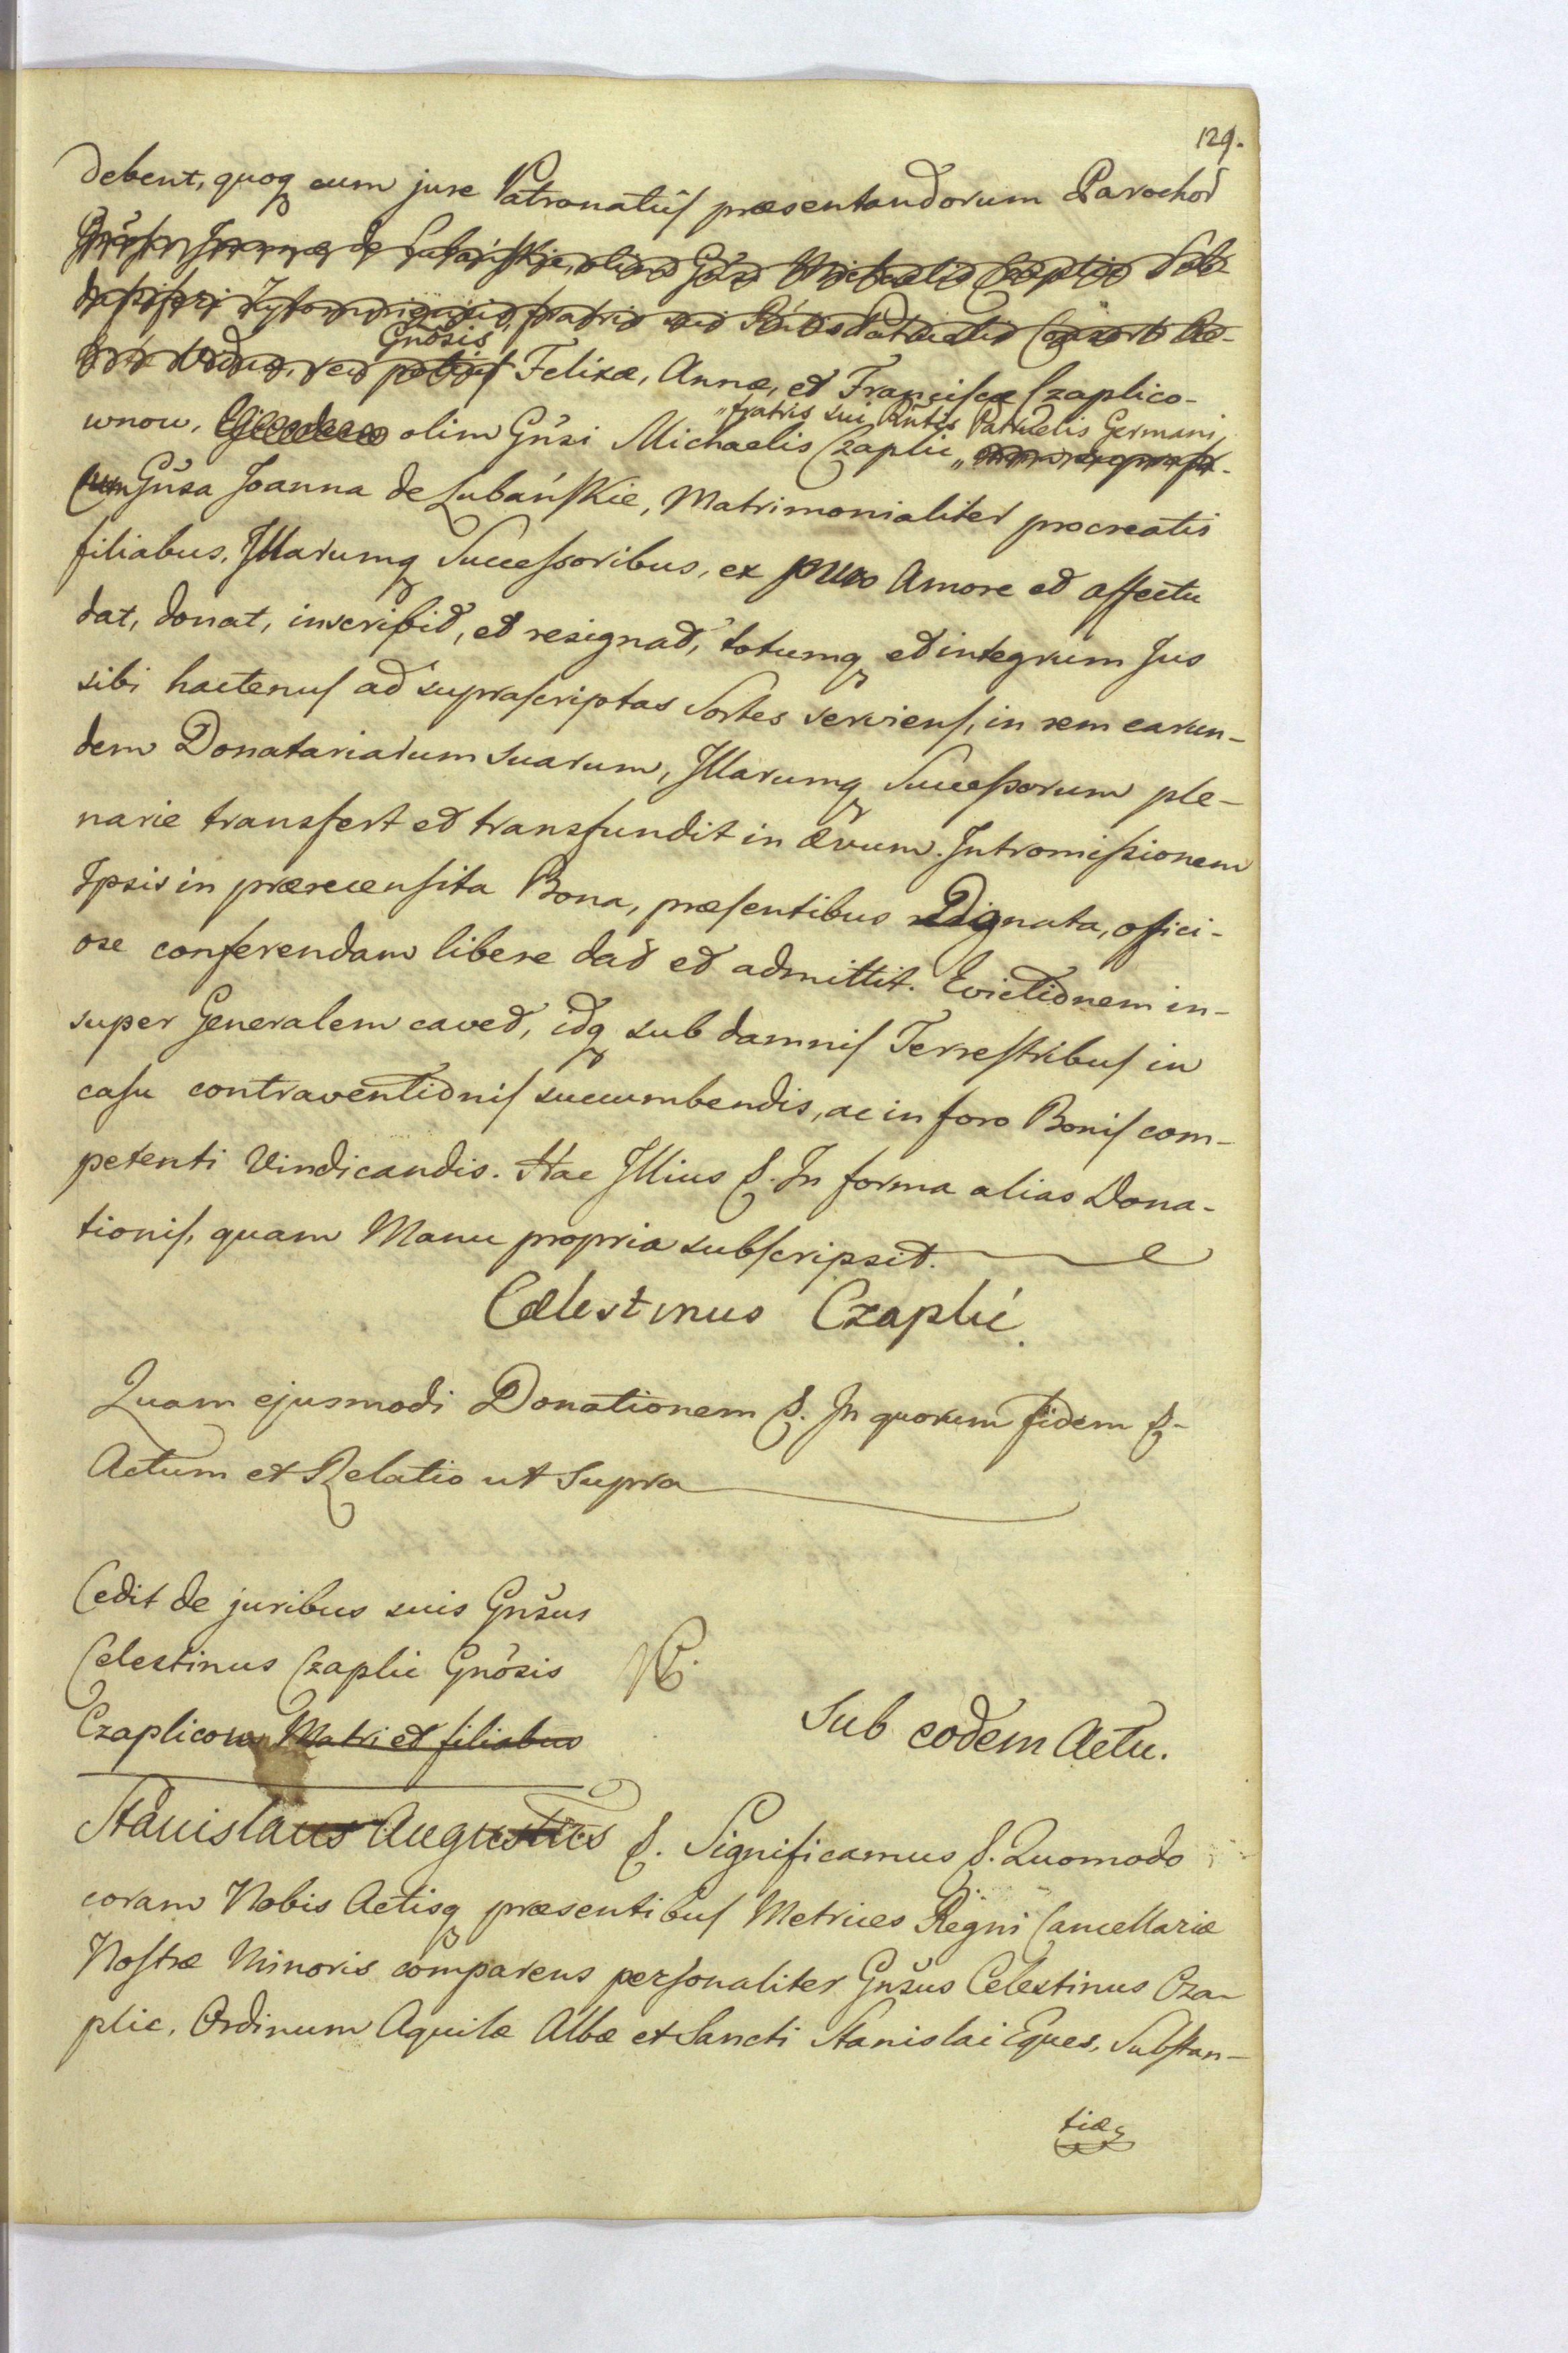 129.
debent, quoq cum jure Patronatûs præsentandorum Parochor̃
Joannæ de Lubańskie, olim Gñsi Michaelis Czaplic Sub-
Żytomiriensis fratris sui Patruelis Consorti
Gnõsis
Vidua, seu potius Felixæ, Annæ, et Franciscæ Czaplico-
„fratris sui Rñtis Patruelis Germani,
wnow, olim Gñsi Michaelis Czaplic „
cum Gñsa Joanna de Lubańskie, Matrimonialiter procreatis
filiabus, Illarumq Successoribus, ex puro Amore et affectu
dat, donat, inscribit, et resignat, totumq et integrum Jus
sibi hactenus ad suprascriptas Sortes serviens, in rem earun-
dem Donatariarum suarum, Illarumq Successorum ple-
narie transfert et transfundit in ævum. Intromissionem
Ipsis in præcensita Bona, præsentibus Dignata, offici-
ose conferendam libere dat et admittit. Evictionem in-
super Generalem cavet, idq sub damnis Terrestribus in
casu contraventionis succumbendis, ac in foro Bonis com-
petenti Vindicandis. Hac Illius &. In forma alias Dona-
tionis, quam Manu propria subscripsit.
Cælestinus Czaplic.
Quam ejusmodi Donationem &. In quorum fidem &-
Actum et Relatio ut Supra
Cedit de juribus suis Gñsus
Celestinus Czaplic Gnõsis
Czaplicow Matri et filiabus
Sub eodem Actu.
Stanislaus Augustus &. Significamus &. Quomodo
coram Nobis Actisq præsentibus Metrices Regni Cancellariæ
Nostræ Minoris comparens personaliter Gñsus Celestinus Cza-
plic, Ordinum Aquilæ Albæ et Sancti Stanislai Eques, Substan-
tiæ